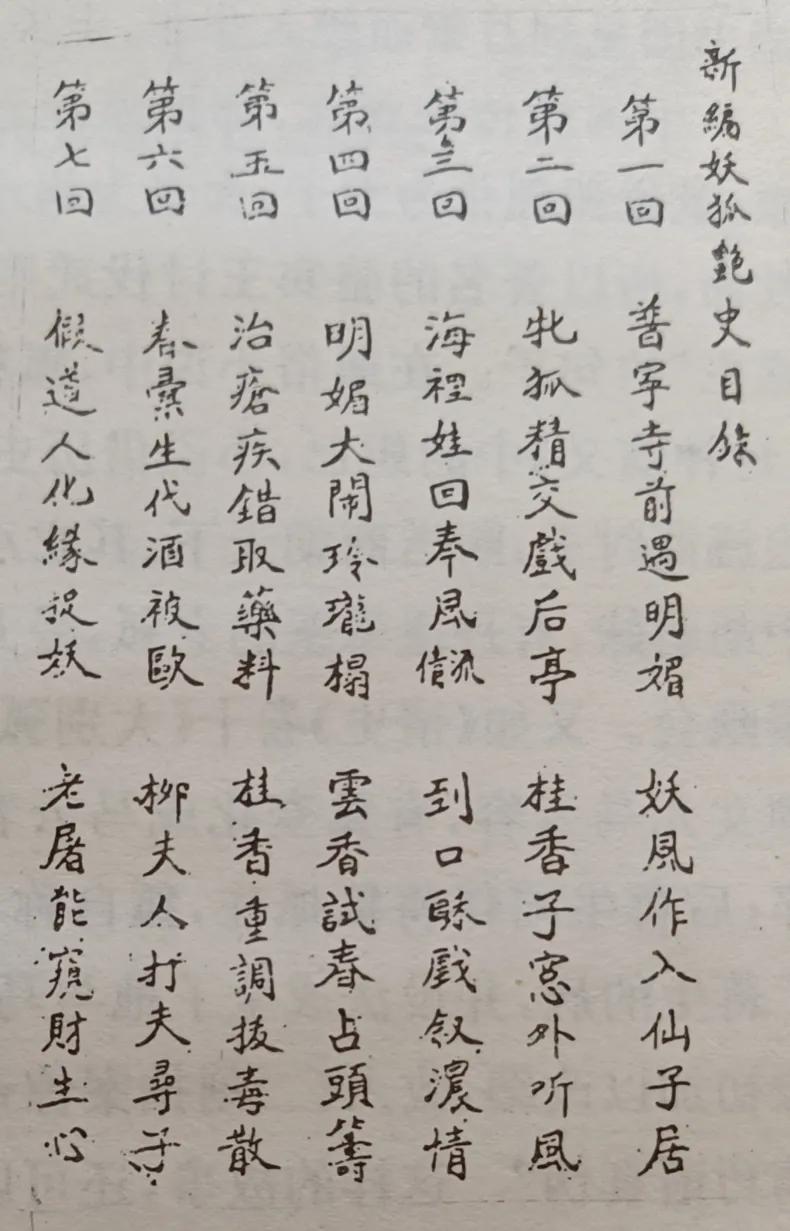 新編妖狐艶史目錄
第一回 普寕寺前遇明媚 妖風作入仙子居
第二回 牝狐精交戲后亭 桂香子窓外听風
第三回 海裡娃回奉風流信 到口酥戲叙濃情
第四回 明媚大鬧玲瓏榻 雲香試春占頭籌
第五回 治瘡疾錯取藥料 桂香重調拔毒散
第六回 春橐生代酒被歐 柳夫人打夫尋子
第七回 假道人化緣捉妖 老屠能窺財生心